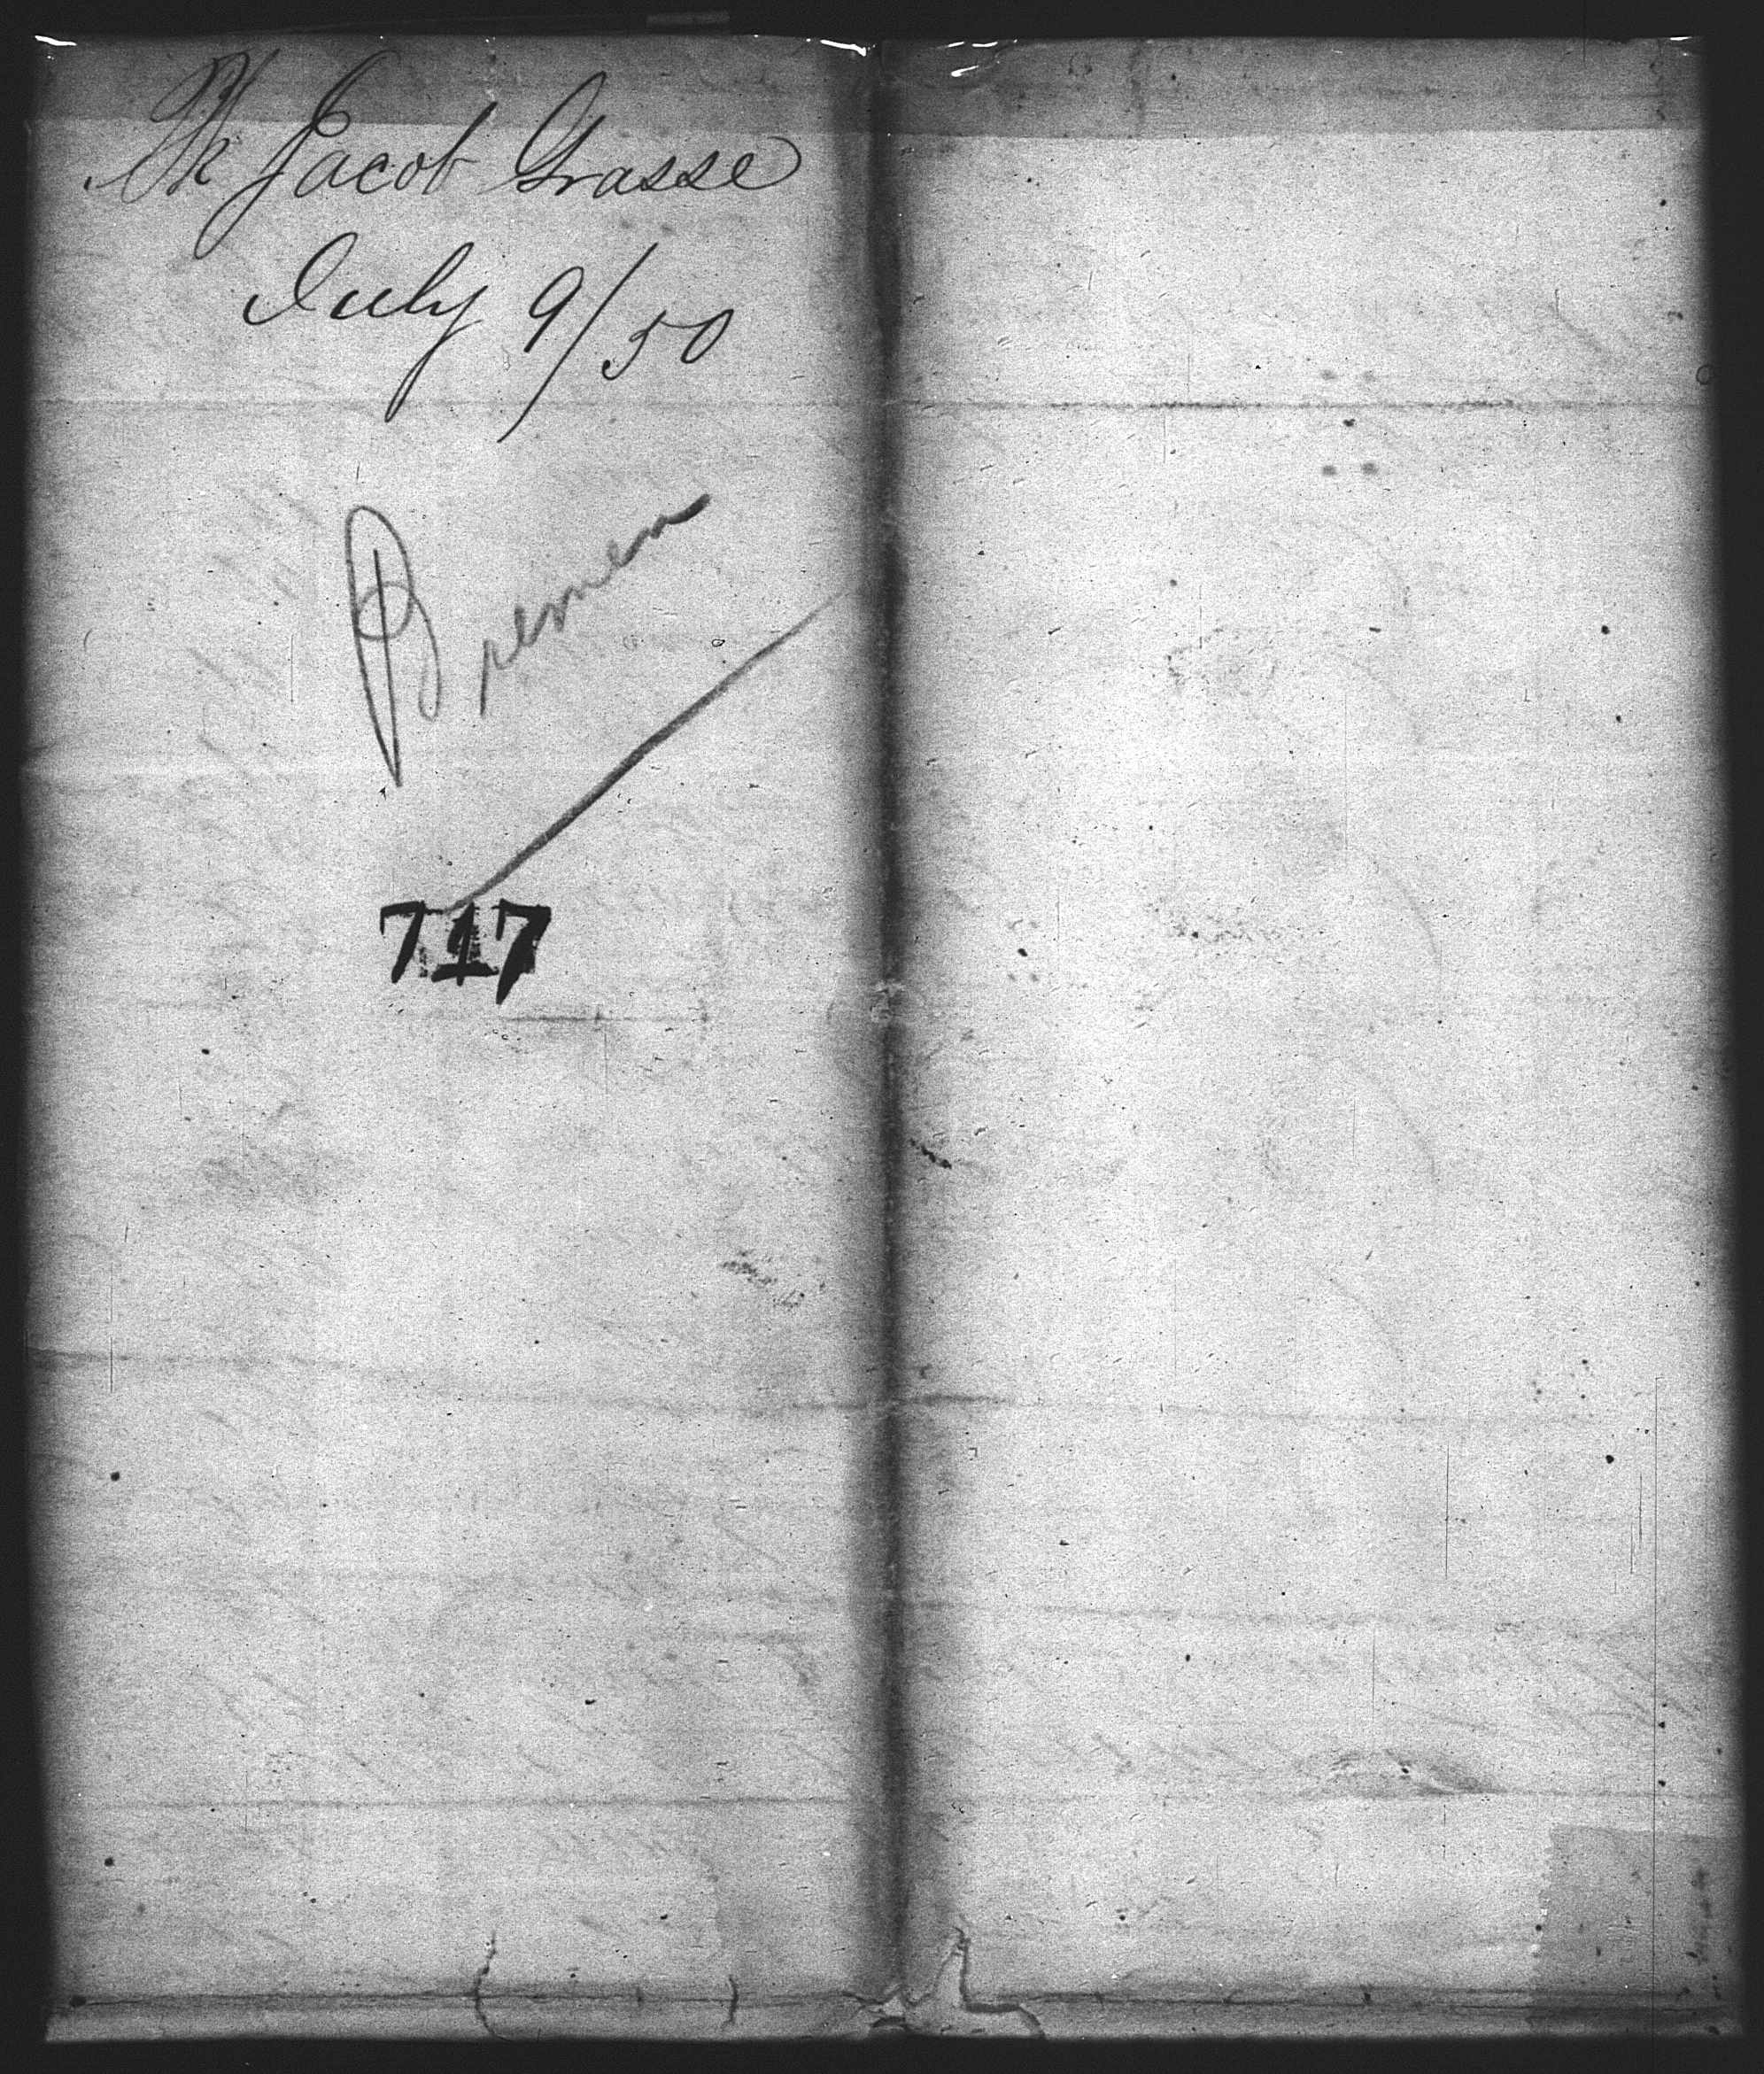 Bk Jacob Grasse
July 9/50
Bremen
717